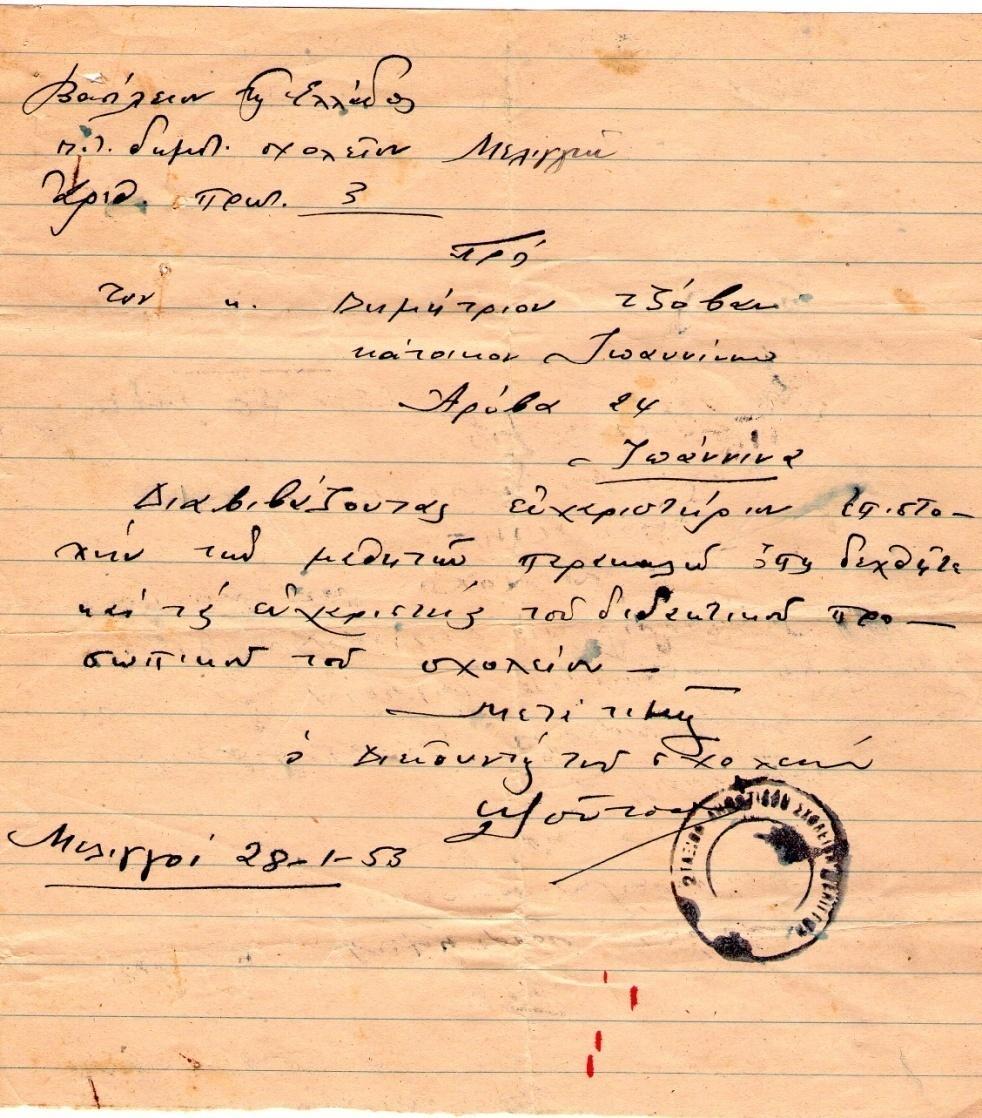 Βασίλειον της Ελλάδος
π.τ. δημοτ. σχολείον Μελιγγών
Αριθ. πρωτ. 3
Προς
τον κ. Δημήτριον Τζόβαν
κάτοικον Ιωαννίνων
Αράβα 24
Ιωάννινα
Διαβιβάζοντας εὐχαριστήριον ἐπιστο-
λήν τῶν μαθητῶν παρακαλῶ ὅπως δεχθῆτε
καί τάς εὐχαριστίας τοῦ διδακτικοῦ προ-
σωπικοῦ τοῦ σχολείου —
Μετά τιμῆς
ὁ Διευθυντής τοῦ σχολείου
Μελιγγοί 28-1-53
2ΤΑΞΙΟΝ ΔΗΜΟΤΙΚΟΝ ΣΧΟΛΕΙΟΝ ΜΕΛΙΓΓΩΝ